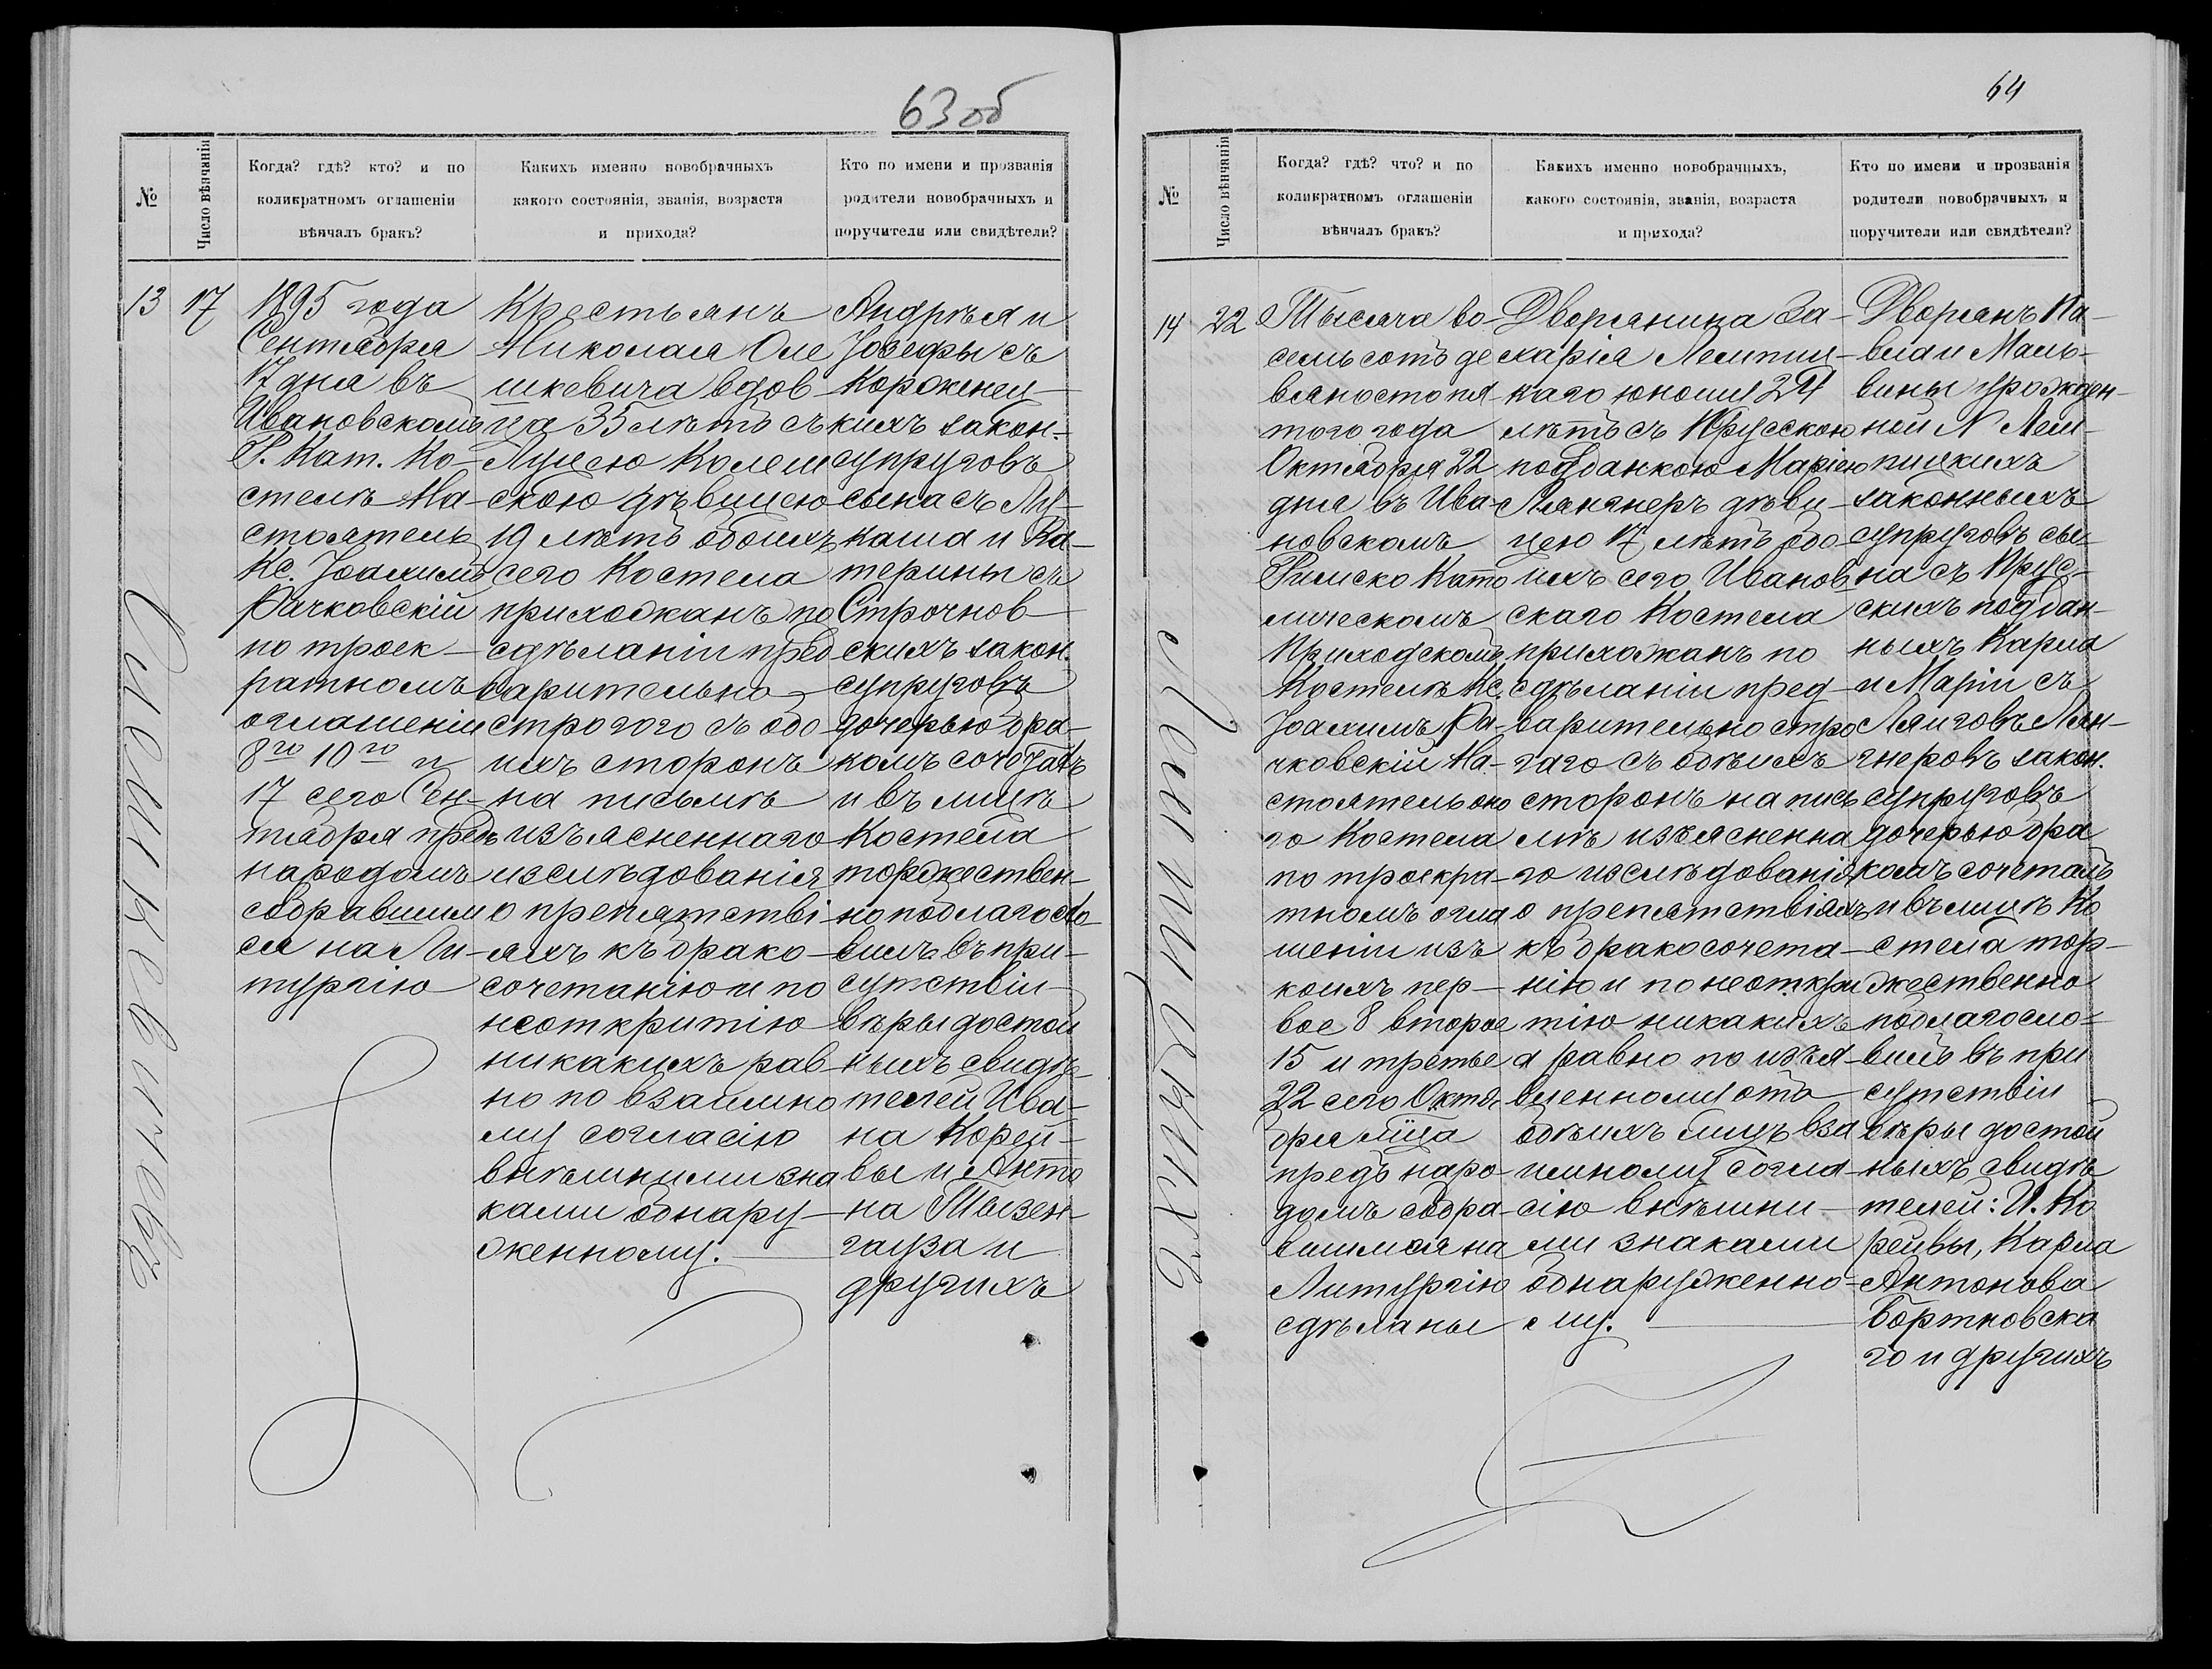 63 об
№
Число вѣнчанія
Когда? гдѣ? кто? и по
коликратномъ оглашеніи
вѣнчалъ бракъ?
Какихъ именно новобрачныхъ
какого состоянія, званія, возраста
и прихода?
Кто по имени и прозванія
родители новобрачныхъ и
поручители или свидѣтели?
13
17
1895 года
Сентября
17 дня въ
Ивановскомъ
Р. Кат. Ко-
стелѣ На-
стоятель
Кс. Іоахимъ
Рачковскій
по троек-
ратномъ
оглашеніи
8го 10го и
17 сего Сен-
тября предъ
народомъ
собравшим
ся на Ли-
тургію
Крестьянъ
Николая Оле
шкевича вдов
ца 35 лѣтъ съ
Луцею Колеш
скою дѣвицею
19 лѣтъ обоихъ
сего Костела
прихожанъ по
сдѣланіи пред
варительно
строгого съ обо
ихъ сторонъ
на письмѣ
изъясненнаго
изслѣдованія
о препятстві-
яхъ къ брако-
сочетанію и по
неоткритію
никакихъ рав
но по взаимно
му согласію
внѣшними зна
ками обнару-
женному.
Андрѣя и
Іозефы съ
Корженец-
кихъ закон.
супруговъ
сына съ Лу-
каша и Ка-
терины съ
Строчнов-
скихъ закон.
супруговъ
дочерью бра-
комъ сочеталъ
и въ лицѣ
Костела
торжествен-
но поблагосло-
вилъ въ при-
сутствіи
вѣры достой
ныхъ свидѣ-
телей Ива-
на Корей-
вы и Анто
на Тызен-
гауза и
другихъ
Олешкевичевъ
64
№
Число вѣнчанія
Когда? гдѣ? что? и по
коликратномъ оглашеніи
вѣнчалъ бракъ?
Какихъ именно новобрачныхъ,
какого состоянія, званія, возраста
и прихода?
Кто по имени и прозванія
родители новобрачныхъ и
поручители или свидѣтели?
14
22
Тысяча во-
семь сотъ де
вяносто пя-
того года
Октября 22
дня въ Ива-
новскомъ
Римско Като
лическомъ
Приходскомъ
Костелѣ Кс.
Іоахимъ Ра-
чковскій На-
стоятель оно
го Костела
по троекра-
тномъ огла
шеніи изъ
коихъ пер-
вое 8 второе
15 и третье
22 сего Октя
бря м͠ца
предъ наро-
домъ собра-
вшимся на
Литургію
сдѣланы
Дворянина За-
харія Лемпиц-
каго юношу 24
лѣтъ съ Прусскою
подданкою Маріею
Лянгнеръ дѣви-
цею 17 лѣтъ обо-
ихъ сего Иванов
скаго Костела
прихожанъ по
сдѣланіи пред-
варительно стро
гаго съ обѣихъ
сторонъ на пись
мѣ изъясненна
го изслѣдованія
о препятствіяхъ
къ бракосочета-
нію и по неоткри
тію никакихъ
а равно по изъя-
вленному отъ
обѣихъ лицъ вза
имному согла-
сію внѣшни-
ми знаками
обнаруженно-
му.
Дворянъ Па-
вла и Маль-
вины урожден-
ной N Лем-
пицкихъ
законныхъ
супруговъ сы-
на съ Прус-
скихъ поддан-
ныхъ Карла
и Маріи съ
Ляиговъ Лян-
гнеровъ закон.
супруговъ
дочерью бра
комъ сочеталъ
и въ лицѣ Ко
стела тор-
жественно
поблагосло-
вилъ въ при
сутствіи
вѣры достой
ныхъ свидѣ
телей: И. Ко
рейвы, Карла
Антонова
Бортновска
го и другихъ
Лемпицкихъ